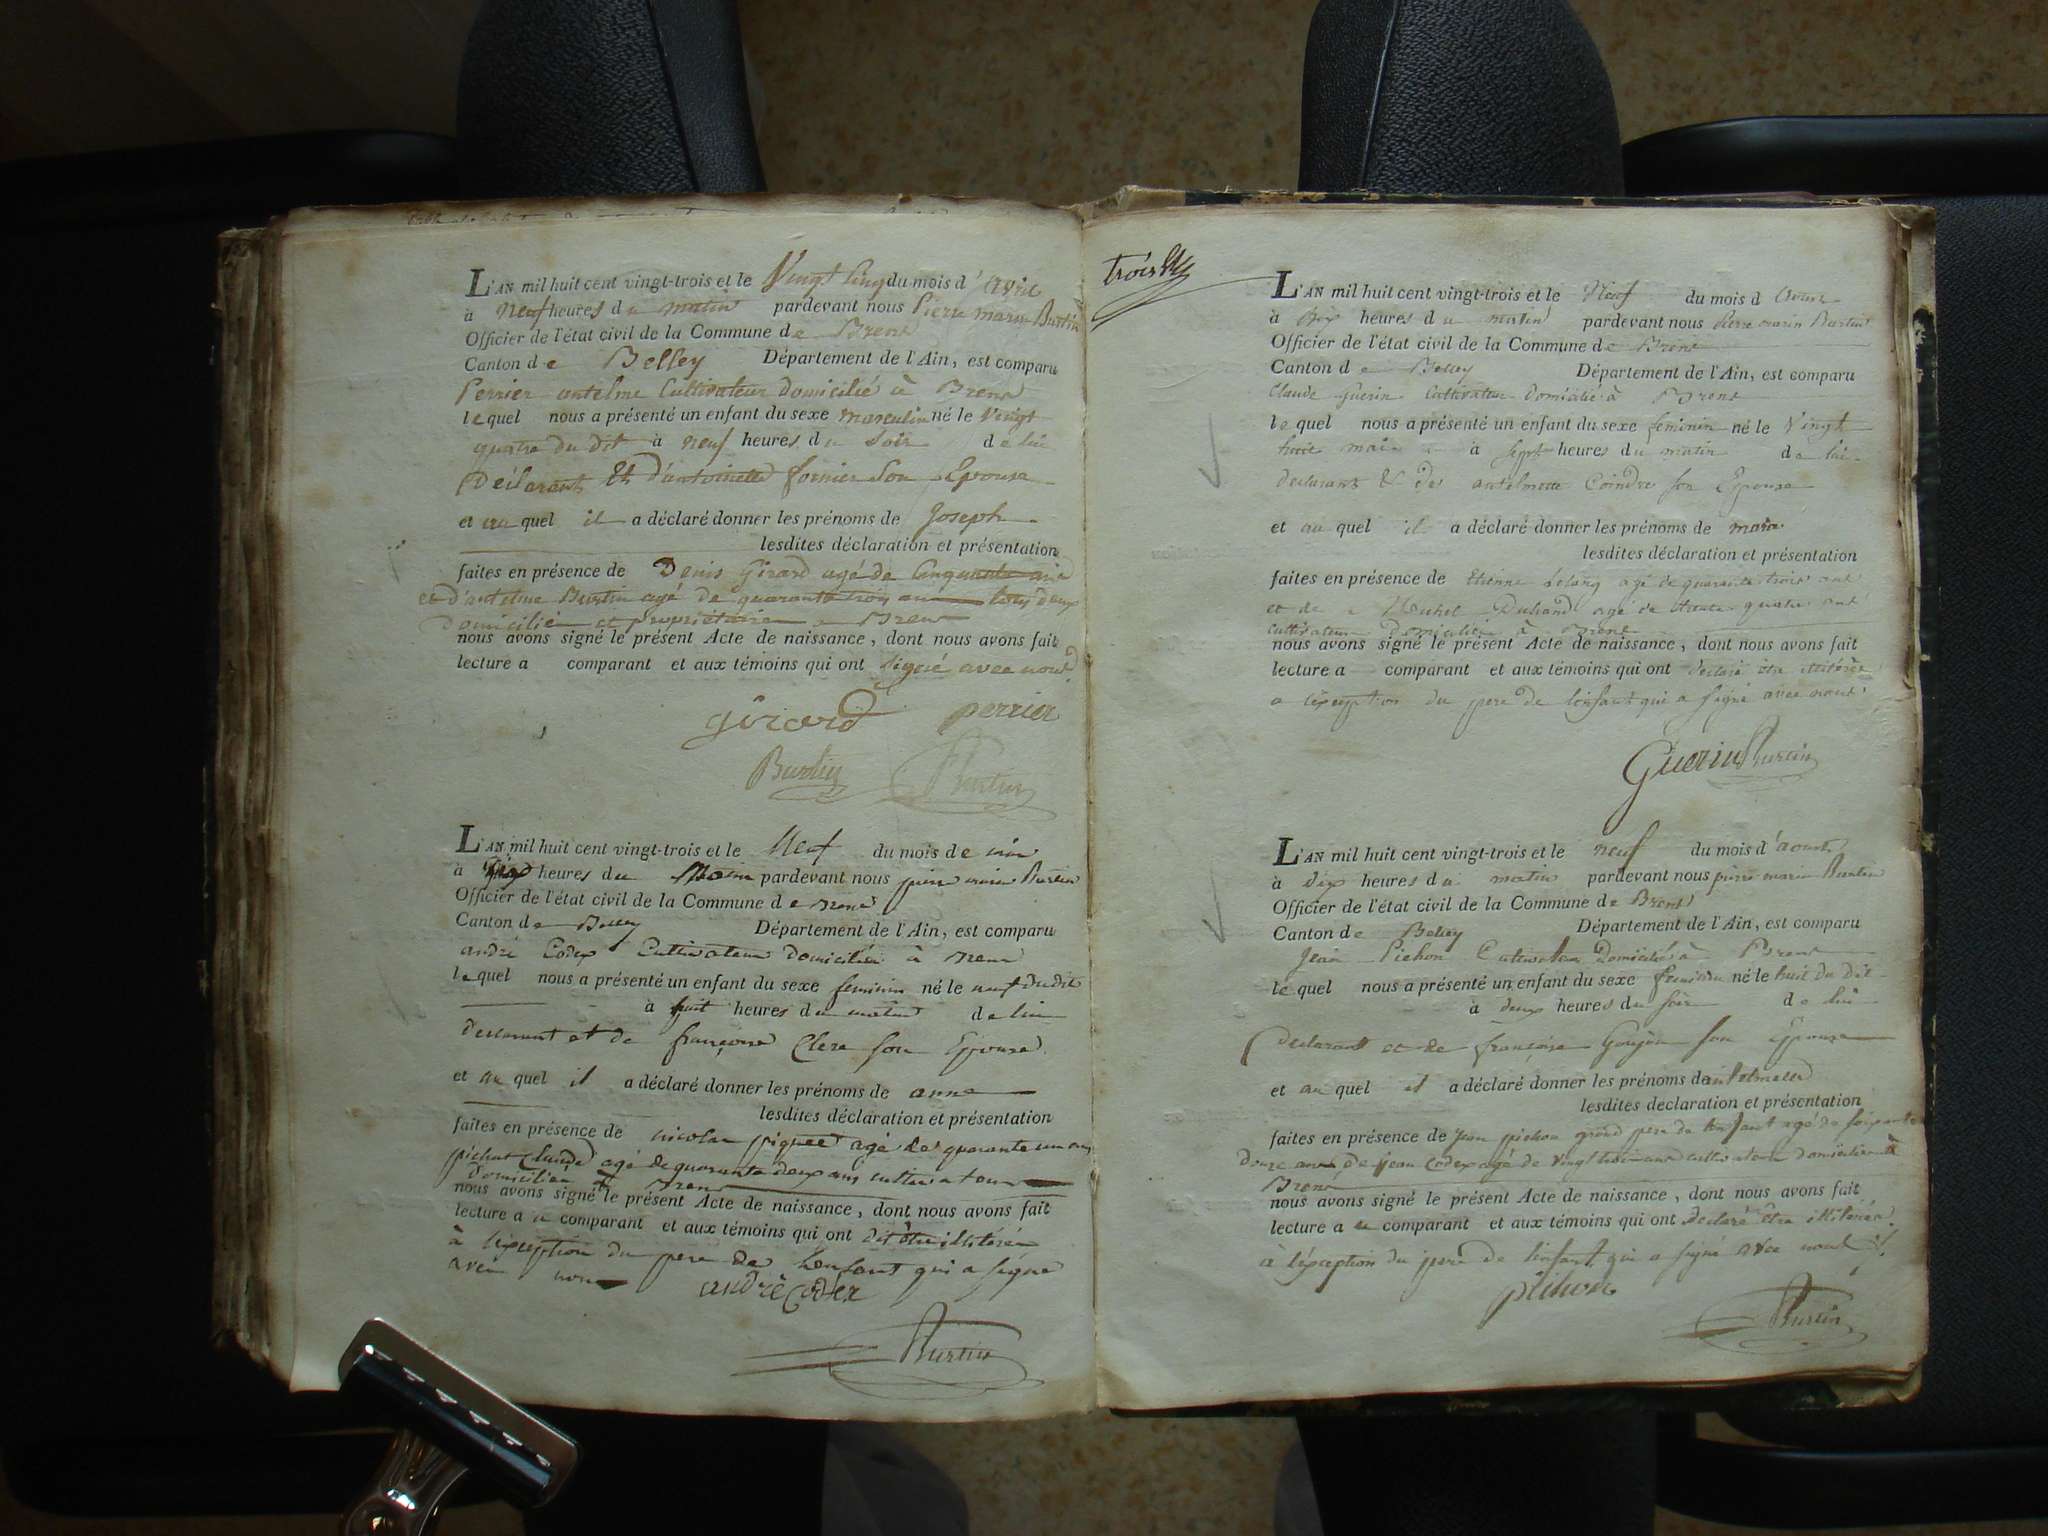 L'AN mil huit cent vingt-trois et le Vingt Cinq du mois d'avril
à neuf heures du matin pardevant nous Pierre marin Burtin
Officier de l'état civil de la Commune de Brens
Canton de Belley Département de l'Ain, est comparu
Perrier antelme Cultivateur domicilié à Brens
lequel nous a présenté un enfant du sexe masculin né le Vingt
quatre du dit à neuf heures du Soir de lui
Déclarant Et d'antoinette fornier Son Epouse
et au quel il a déclaré donner les prénoms de Joseph
lesdites déclaration et présentation
faites en présence de Denis Girard agé de Cinquante ans
et d'antelme Burtin agé de quarante trois ans tous deux
Domicilié et propriétaire à Brens
nous avons signé le présent Acte de naissance, dont nous avons fait
lecture a comparant et aux témoins qui ont signé avec nous
girard perrier
Burtin Burtin
L'AN mil huit cent vingt-trois et le Neuf du mois de
à heures du pardevant nous pierre marin Burtin
Officier de l'état civil de la Commune de Brens
Canton de Belley Département de l'Ain, est comparu
andré Codex Cultivateur domicilié à Brens
lequel nous a présenté un enfant du sexe feminin né le neuf du dit
à huit heures du matin de lui
declarant et de françoise Clerc son Epouse
et au quel il a déclaré donner les prénoms de anne
lesdites déclaration et présentation
faites en présence de nicolas piquet agé de quarante un ans
pichat Claude agé de quarante deux ans cultivateur
domicilié à Brens
nous avons signé le présent Acte de naissance, dont nous avons fait
lecture a u comparant et aux témoins qui ont dit être illitérés
à l'exception du pere de l'enfant qui a signé
avec nous
andré Codex
Burtin
trois
L'AN mil huit cent vingt-trois et le Neuf du mois d
à dix heures du matin pardevant nous Pierre marin Burtin
Officier de l'état civil de la Commune de Brens
Canton de Belley Département de l'Ain, est comparu
Claude Guerin Cultivateur domicilié à Brens
lequel nous a présenté un enfant du sexe feminin né le Vingt
à sept heures du matin de lui
declarant & de antelmette Coindre son Epouse
et au quel il a déclaré donner les prénoms de marie
lesdites déclaration et présentation
faites en présence de Etienne agé de quarante trois ans
et de Michel Duhand agé de trente quatre ans
cultivateur Domicilié à Brens
nous avons signé le présent Acte de naissance, dont nous avons fait
lecture a comparant et aux témoins qui ont declaré être illitérés
a l'exception du pere de l'enfant qui a signé avec nous
Guerin Burtin
L'AN mil huit cent vingt-trois et le neuf du mois d'aoust
à dix heures du matin pardevant nous pierre marin Burtin
Officier de l'état civil de la Commune de Brens
Canton de Belley Département de l'Ain, est comparu
Jean Pichon Cultivateur Domicilié à Brens
lequel nous a présenté un enfant du sexe feminin né le huit du dit
à deux heures du soir de lui
Declarant et de françoise Goujon son Epouse
et au quel il a déclaré donner les prénoms de antelmette
lesdites declaration et présentation
faites en présence de Jean pichon grand pere de l'enfant agé de soixante
douze ans de Jean Codex agé de vingt trois ans cultivateur domicilié à
Brens
nous avons signé le présent Acte de naissance, dont nous avons fait
lecture a u comparant et aux témoins qui ont declaré être illiterés
à l'éxception du pere de l'enfant qui a signé avec nous
pichon
Burtin